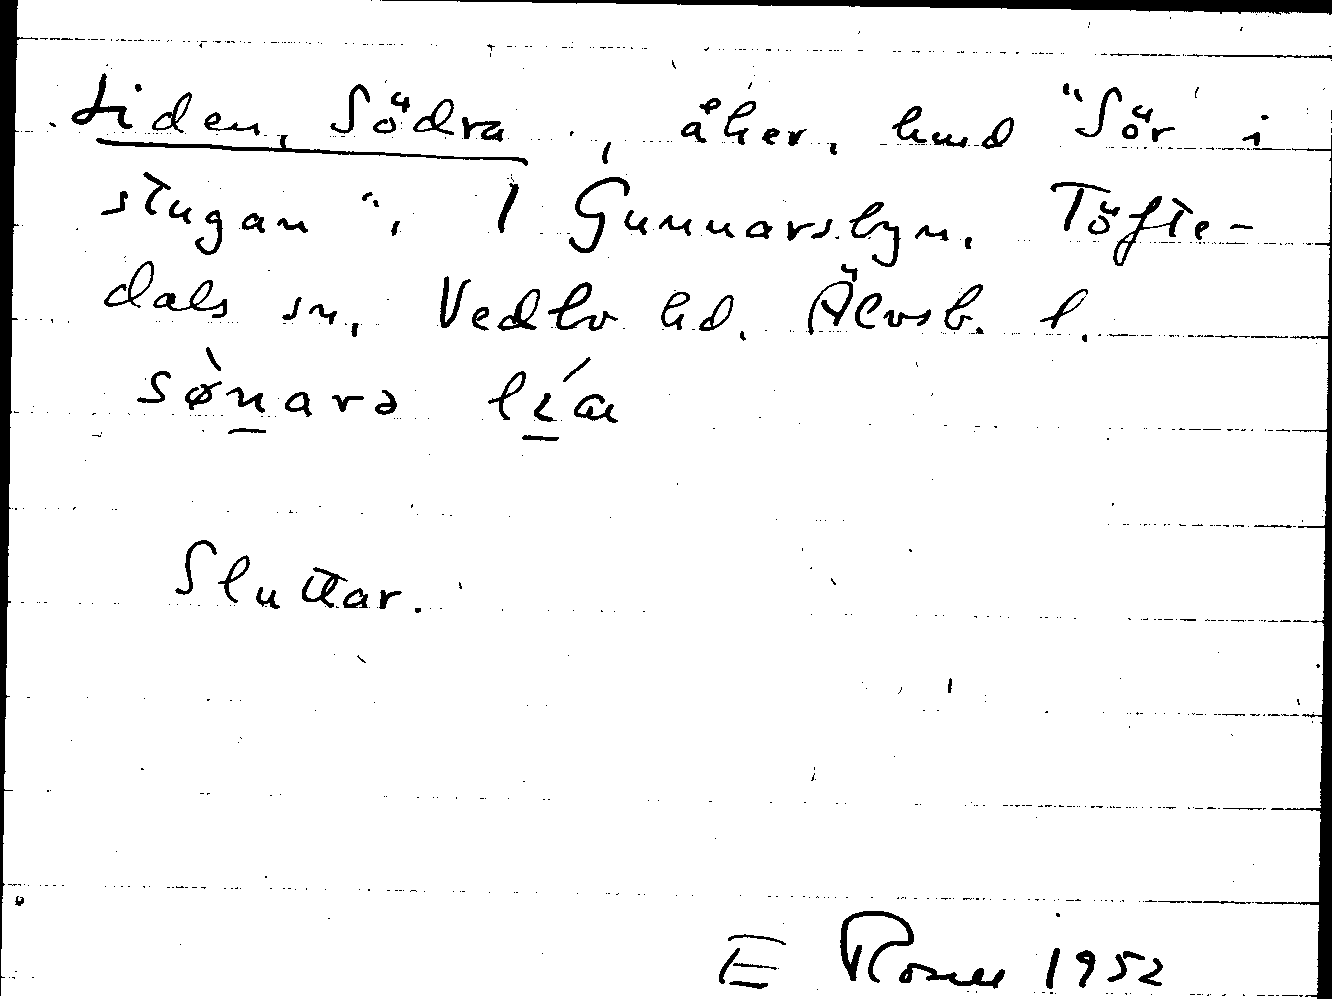 Liden, Södra, åker, hmd "Sör i
stugan", 1 Gunnarsbyn, Töfte-
dals sn, Vedbo hd. Älvsb. l.
sø̀narə lía
Sluttar.
E 1952